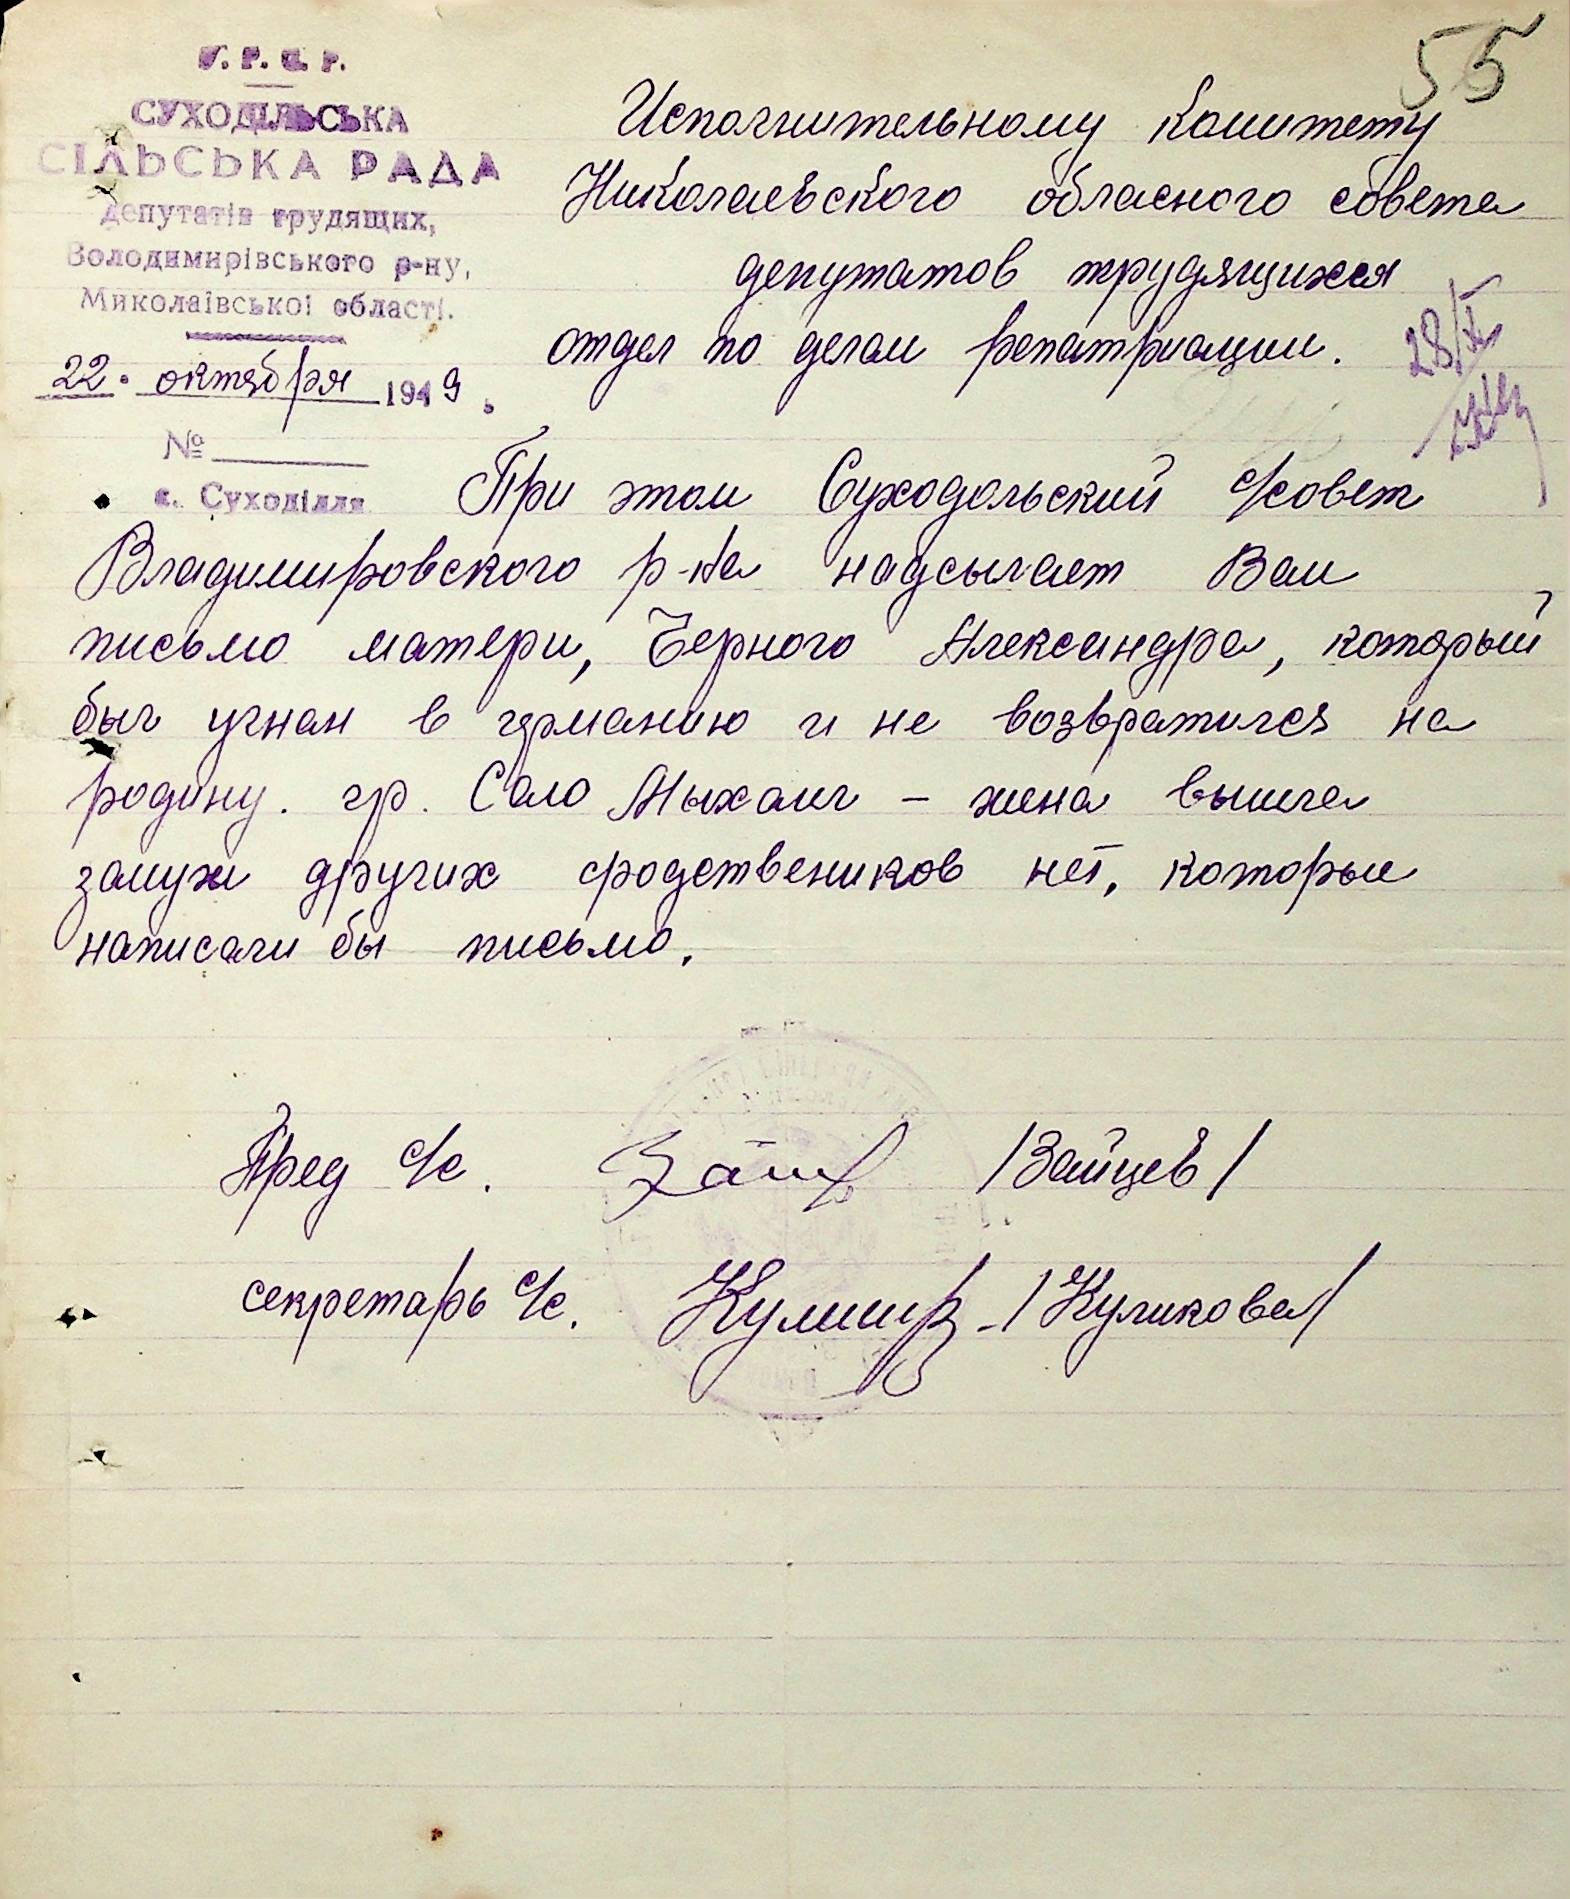 55
У. Р. С. Р.
СУХОДІЛЬСЬКА
СІЛЬСЬКА РАДА
депутатів трудящих,
Володимирівського р-ну,
Миколаївської області.
22. октября 1949.
№
с. Суходілля
Исполнительному комитету
Николаевского обласного совета
депутатов трудящихся
отдел по делам репатриации.
28/X
При этом Суходольский с/совет
Владимировского р-на надсылает Вам
письмо матери, Черного Александра, который
был угнан в германию и не возвратился на
родину. гр. Сало Мыхаил – жена вышла
замуж других сродствеников нет, которые
написали бы письмо.
Пред с/с. /Зайцев/
секретарь с/с. /Куликова/